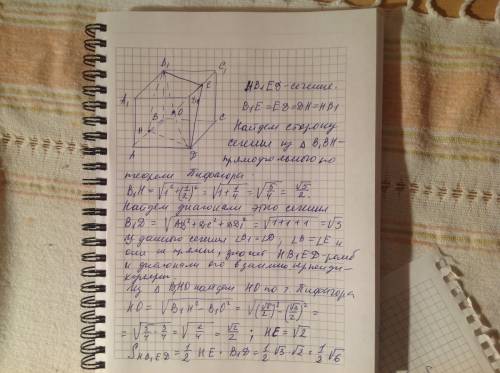 B₁ C₁
E
A₁
O
B C
H
A D
HB₁ED - сечение.
B₁E = ED = DH = HB₁
Найдем сторону
сечения из Δ B₁BH -
прямоугольного по
теореме Пифагора
B₁H = √1² + (1/2)² = √1 + 1/4 = √5/4 = √5/2.
Найдем диагонали этого сечения
B₁D = √1+1+1 = √3
Из данного сечения ∠B₁ = ∠D, ∠H = ∠E и
они не прямые, значит HB₁ED - ромб
и диагонали его взаимно перпенди-
кулярны
Из Δ B₁HO найдем HO по т. Пифагора
HO = √B₁H² - B₁O² = √(√5/2)² - (√3/2)² =
= √5/4 - 3/4 = √2/4 = √2/2 ; HE = √2
S HB₁ED = 1/2 HE · B₁D = 1/2 √3 · √2 = 1/2 √6